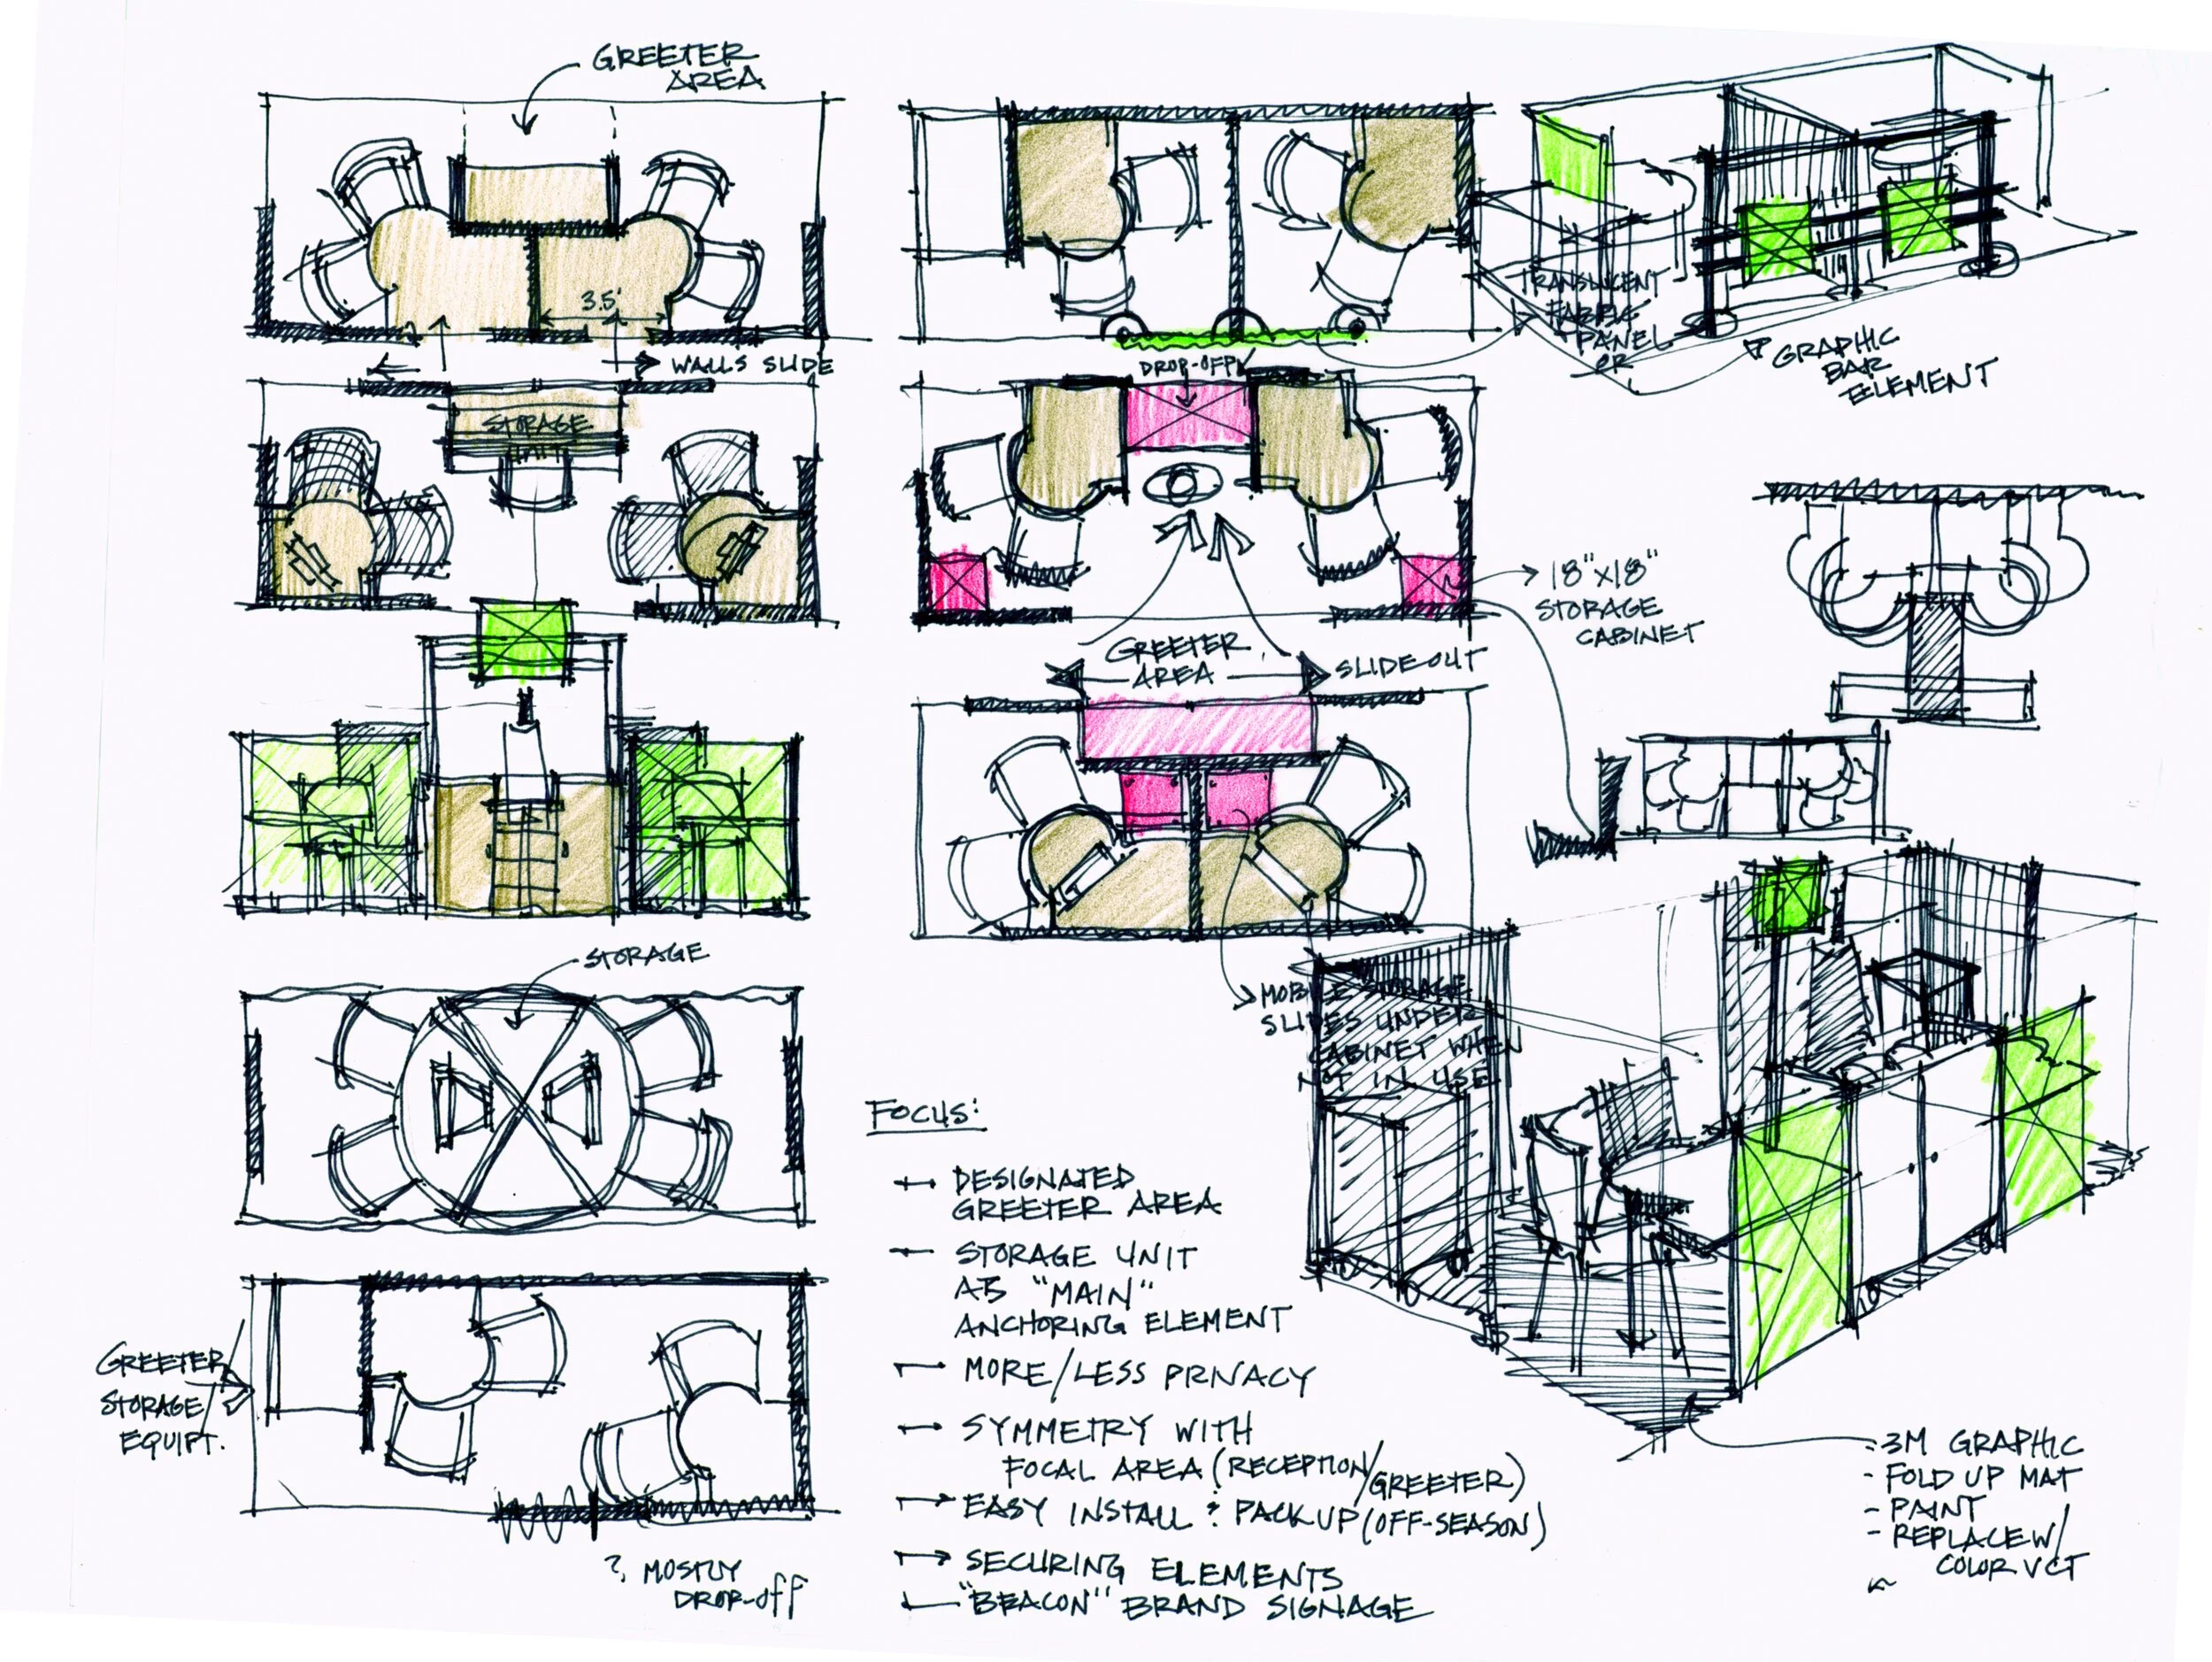 GREETER
AREA
3.5'
WALLS SLIDE
STORAGE
UNIT
STORAGE
GREETER
STORAGE/
EQUIPT.
? MOSTLY
DROP-OFF
DROP-OFF
GREETER
AREA
SLIDE OUT
18"x18"
STORAGE
CABINET
MOBILE STORAGE
SLIDES UNDER
CABINET WHEN
NOT IN USE
TRANSLUCENT
FABRIC
PANEL
OR
GRAPHIC
BAR
ELEMENT
FOCUS:
DESIGNATED
GREETER AREA
STORAGE UNIT
AS "MAIN"
ANCHORING ELEMENT
MORE/LESS PRIVACY
SYMMETRY WITH
FOCAL AREA (RECEPTION/GREETER)
EASY INSTALL & PACK UP (OFF-SEASON)
SECURING ELEMENTS
"BEACON" BRAND SIGNAGE
- 3M GRAPHIC
- FOLD UP MAT
- PAINT
- REPLACE W/
COLOR VCT